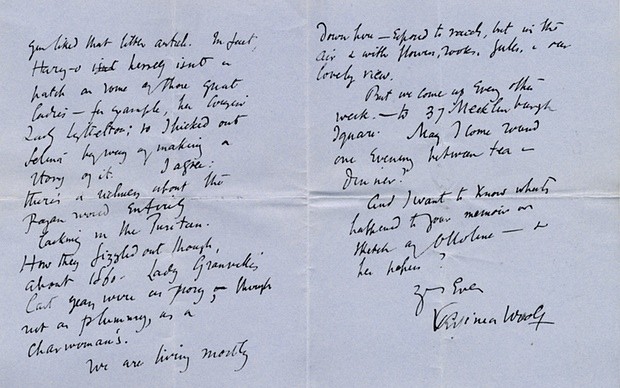 you liked that letter article. In fact,
Hary-o herself isnt a
patch on some of those great
ladies — for example, her cousin
Lady Lyttelton; so I kicked out
by way of making a
story of it. I agree:
there's a richness about the
Pagan world entirely
lacking in the Puritan.
How they fizzled out though,
about 1860. Lady Granville's
last years were as prosy, though
not as plummy, as a
charwoman's.
We are living mostly
Down here — Exposed to raids, but in the
air & with flowers, rooks, gulls, & our
lovely view.
But we come up every other
week — to 37 Mecklenburgh
Square. May I come round
one evening between tea &
dinner?
And I want to know whats
happened to your memoir or
sketch of Ottoline — &
her papers?
Yrs Ever
Virginia Woolf